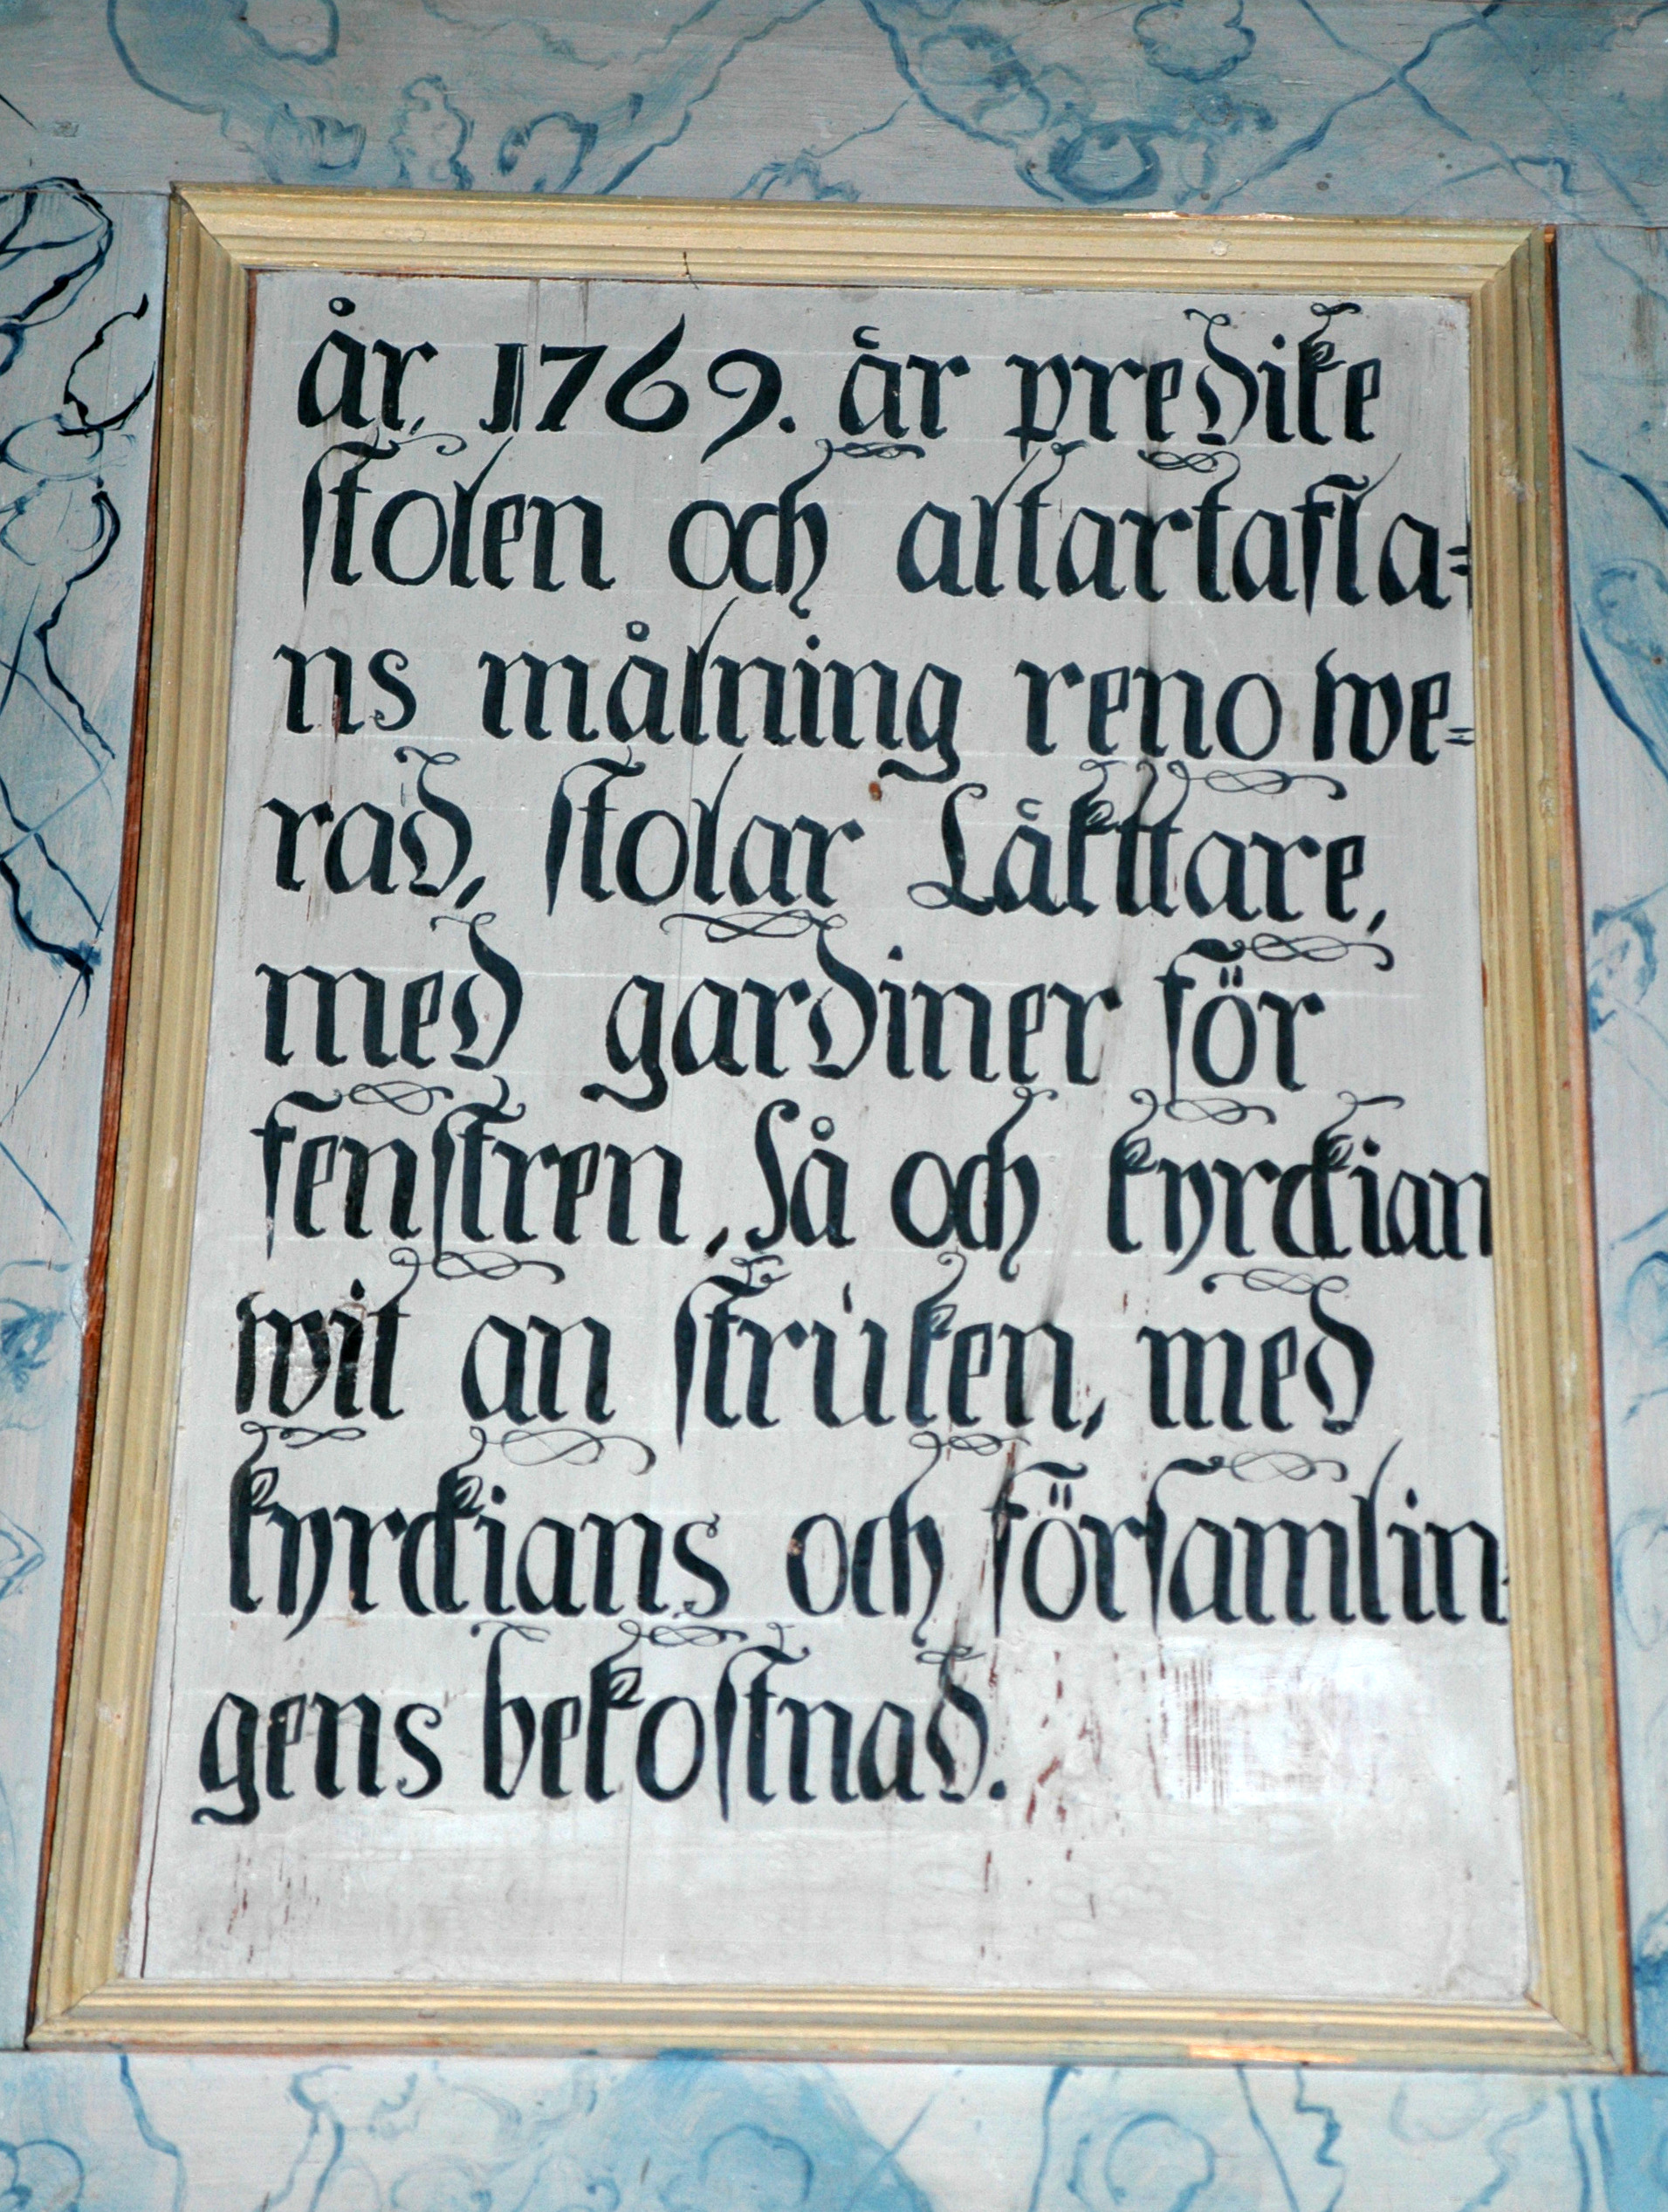 år. 1769. är predike
stolen och altartafla=
ns målning renowe=
rad, stolar Läkttare,
med gardiner för
fenstren, så och kyrckian
wit an struken, med
kyrckians och församlin-
gens bekostnad.